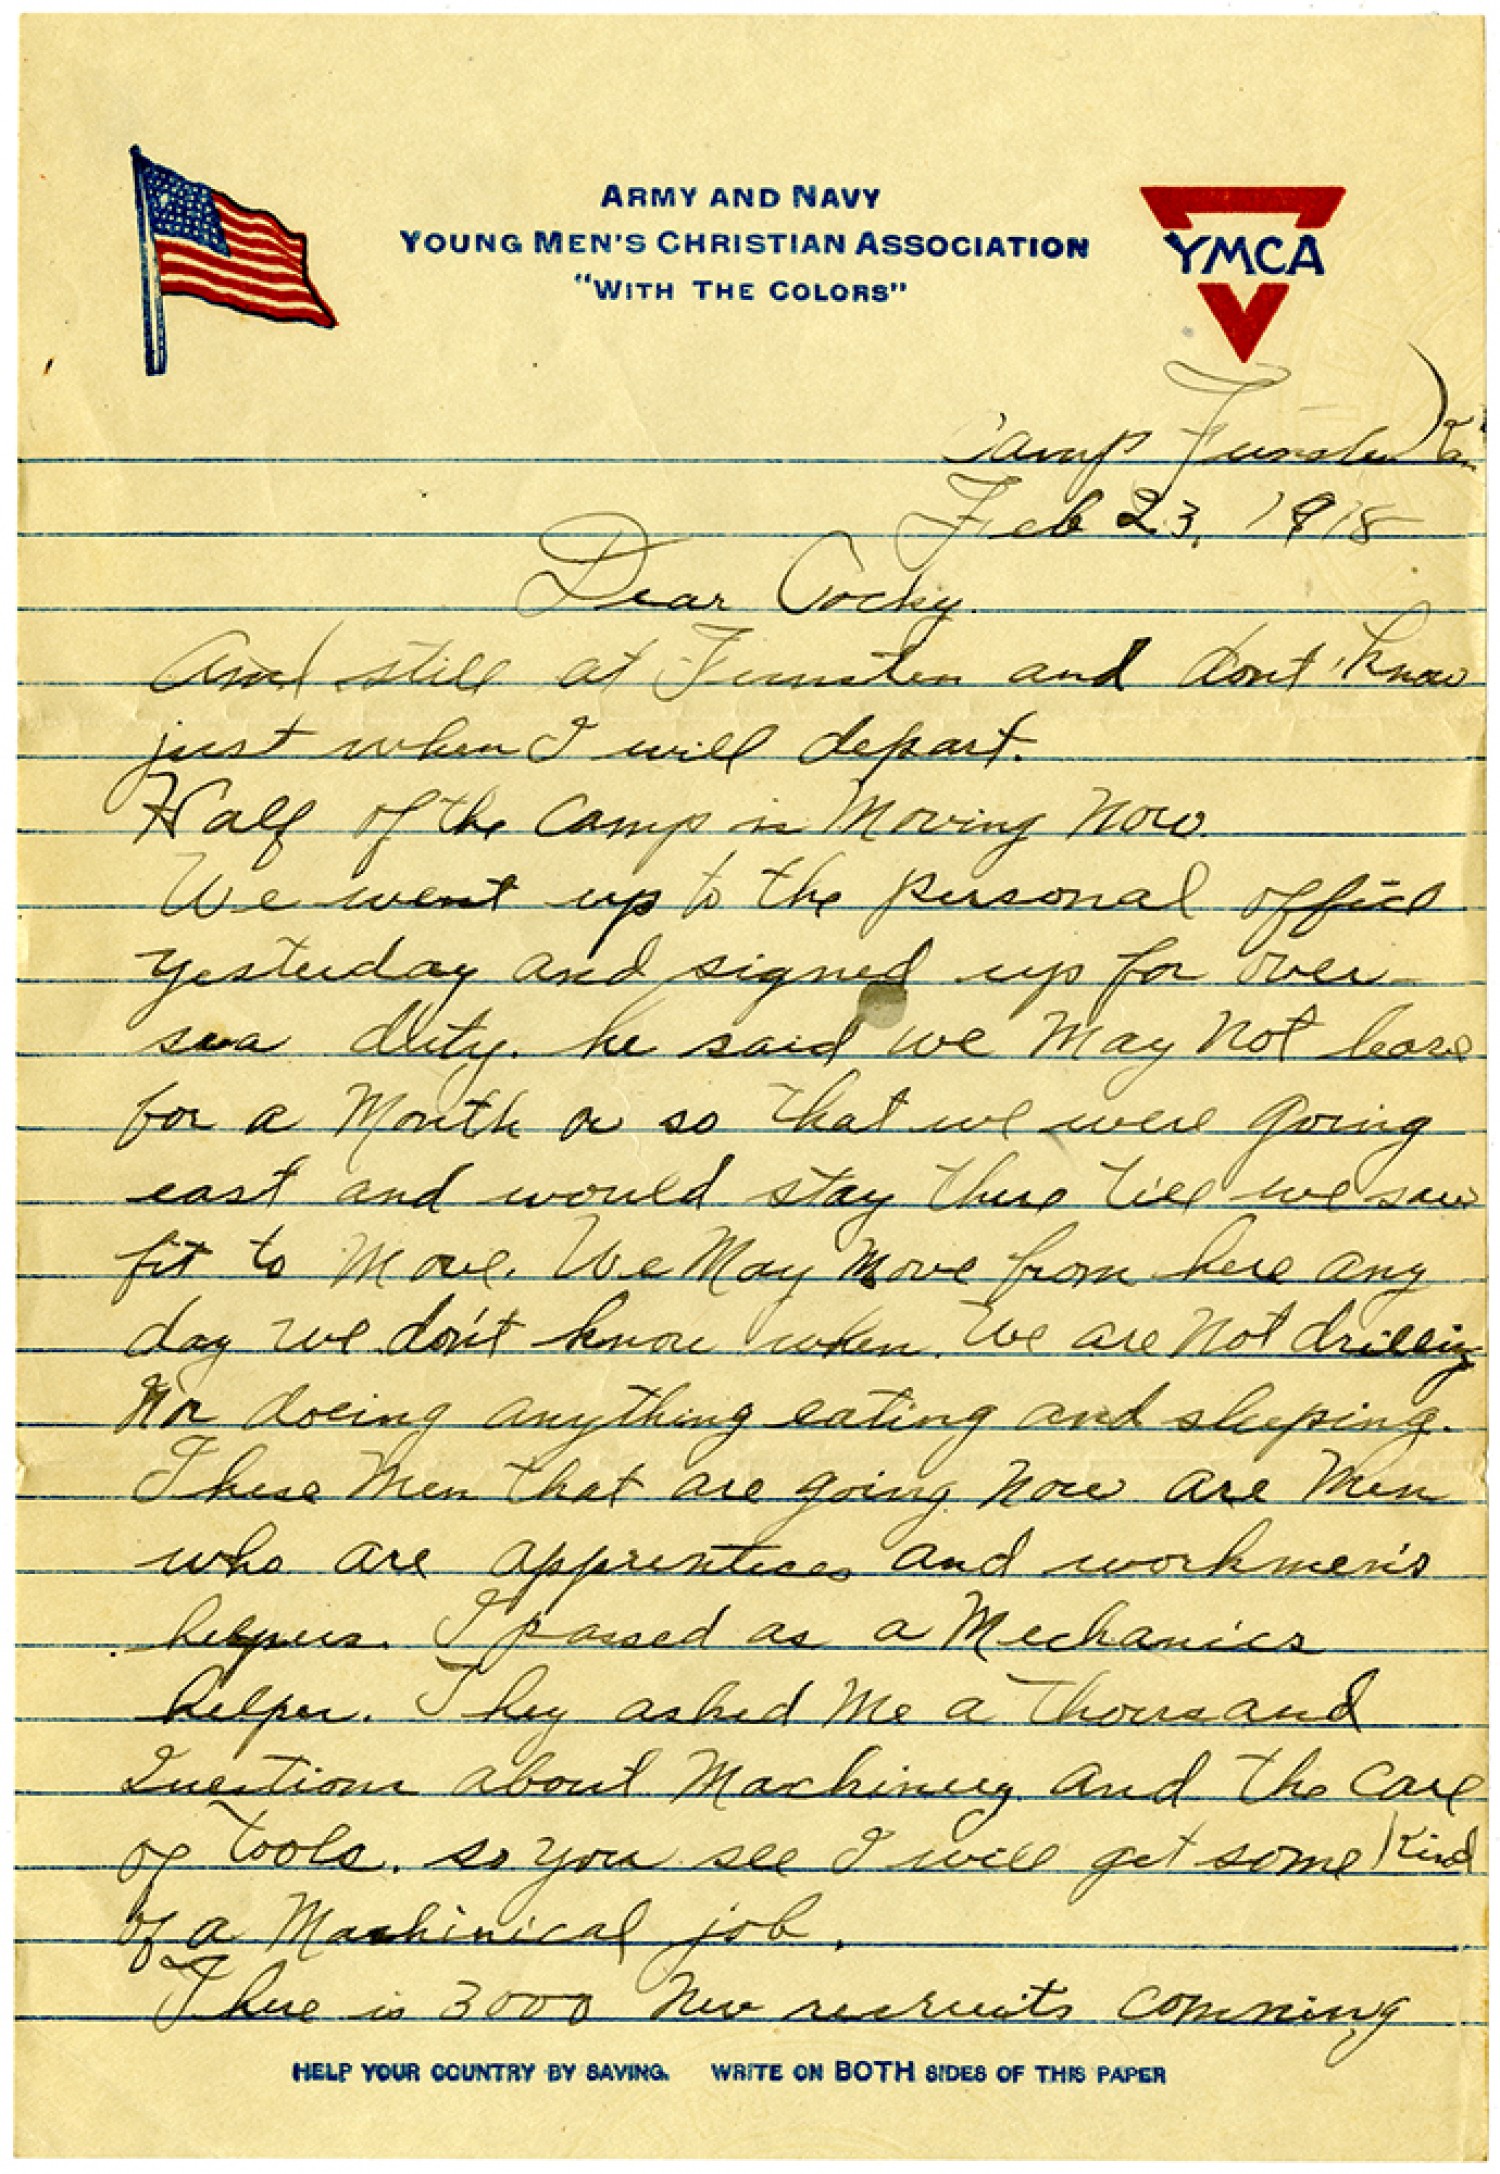 ARMY AND NAVY
YOUNG MEN'S CHRISTIAN ASSOCIATION
"WITH THE COLORS"
YMCA
Camp Funston Kan
Feb 23, 1918
Dear Cocky.
Am still at Funston and dont know
just when I will depart.
Half of the camp is Moving Now.
We went up to the personal office
yesterday and signed up for over-
sea duty. he said we May Not leave
for a Month or so that we were going
east and would stay there till we saw
fit to Move. We May Move from here any
day we don't know when. We are Not drilling
Nor doeing anything eating and sleeping.
These Men that are going Now are Men
who are apprentices and workmen's
helpers. I passed as a Mechanics
helper. They asked Me a thousand
Questions about Machinery and the care
of tools. so you see I will get some kind
of a Machinical job.
There is 3000 New recruits comning
HELP YOUR COUNTRY BY SAVING. WRITE ON BOTH SIDES OF THIS PAPER